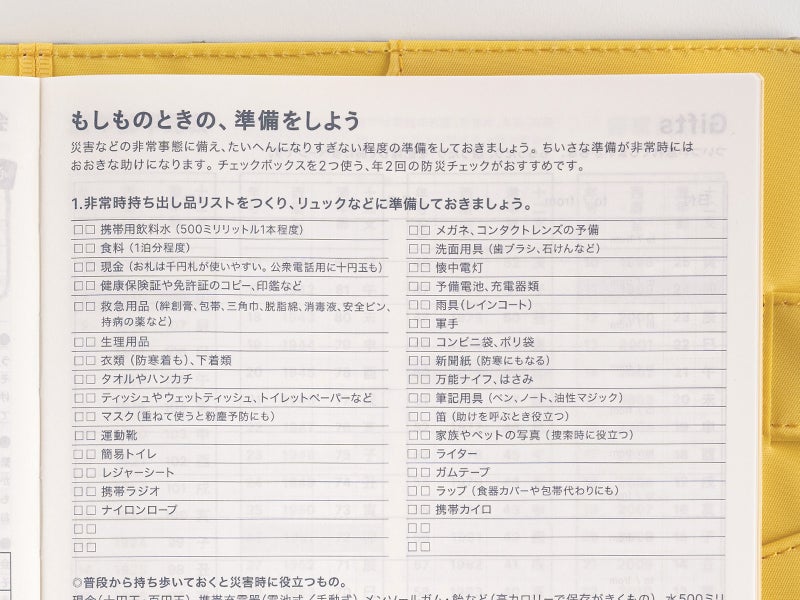 もしものときの、準備をしよう
災害などの非常事態に備え、たいへんになりすぎない程度の準備をしておきましょう。ちいさな準備が非常時には
おおきな助けになります。チェックボックスを2つ使う、年2回の防災チェックがおすすめです。
1.非常時持ち出し品リストをつくり、リュックなどに準備しておきましょう。
□□ 携帯用飲料水（500ミリリットル1本程度）
□□ 食料（1泊分程度）
□□ 現金（お札は千円札が使いやすい。公衆電話用に十円玉も）
□□ 健康保険証や免許証のコピー、印鑑など
□□ 救急用品（絆創膏、包帯、三角巾、脱脂綿、消毒液、安全ピン、
持病の薬など）
□□ 生理用品
□□ 衣類（防寒着も）、下着類
□□ タオルやハンカチ
□□ ティッシュやウェットティッシュ、トイレットペーパーなど
□□ マスク（重ねて使うと粉塵予防にも）
□□ 運動靴
□□ 簡易トイレ
□□ レジャーシート
□□ 携帯ラジオ
□□ ナイロンロープ
□□
□□
□□ メガネ、コンタクトレンズの予備
□□ 洗面用具（歯ブラシ、石けんなど）
□□ 懐中電灯
□□ 予備電池、充電器類
□□ 雨具（レインコート）
□□ 軍手
□□ コンビニ袋、ポリ袋
□□ 新聞紙（防寒にもなる）
□□ 万能ナイフ、はさみ
□□ 筆記用具（ペン、ノート、油性マジック）
□□ 笛（助けを呼ぶとき役立つ）
□□ 家族やペットの写真（捜索時に役立つ）
□□ ライター
□□ ガムテープ
□□ ラップ（食器カバーや包帯代わりにも）
□□ 携帯カイロ
□□
□□
◎普段から持ち歩いておくと災害時に役立つもの。
現金（十円玉・百円玉）、携帯充電器（電池式／手動式）、メンソールガム・飴など（高カロリーで保存がきくもの）、水500ミリ